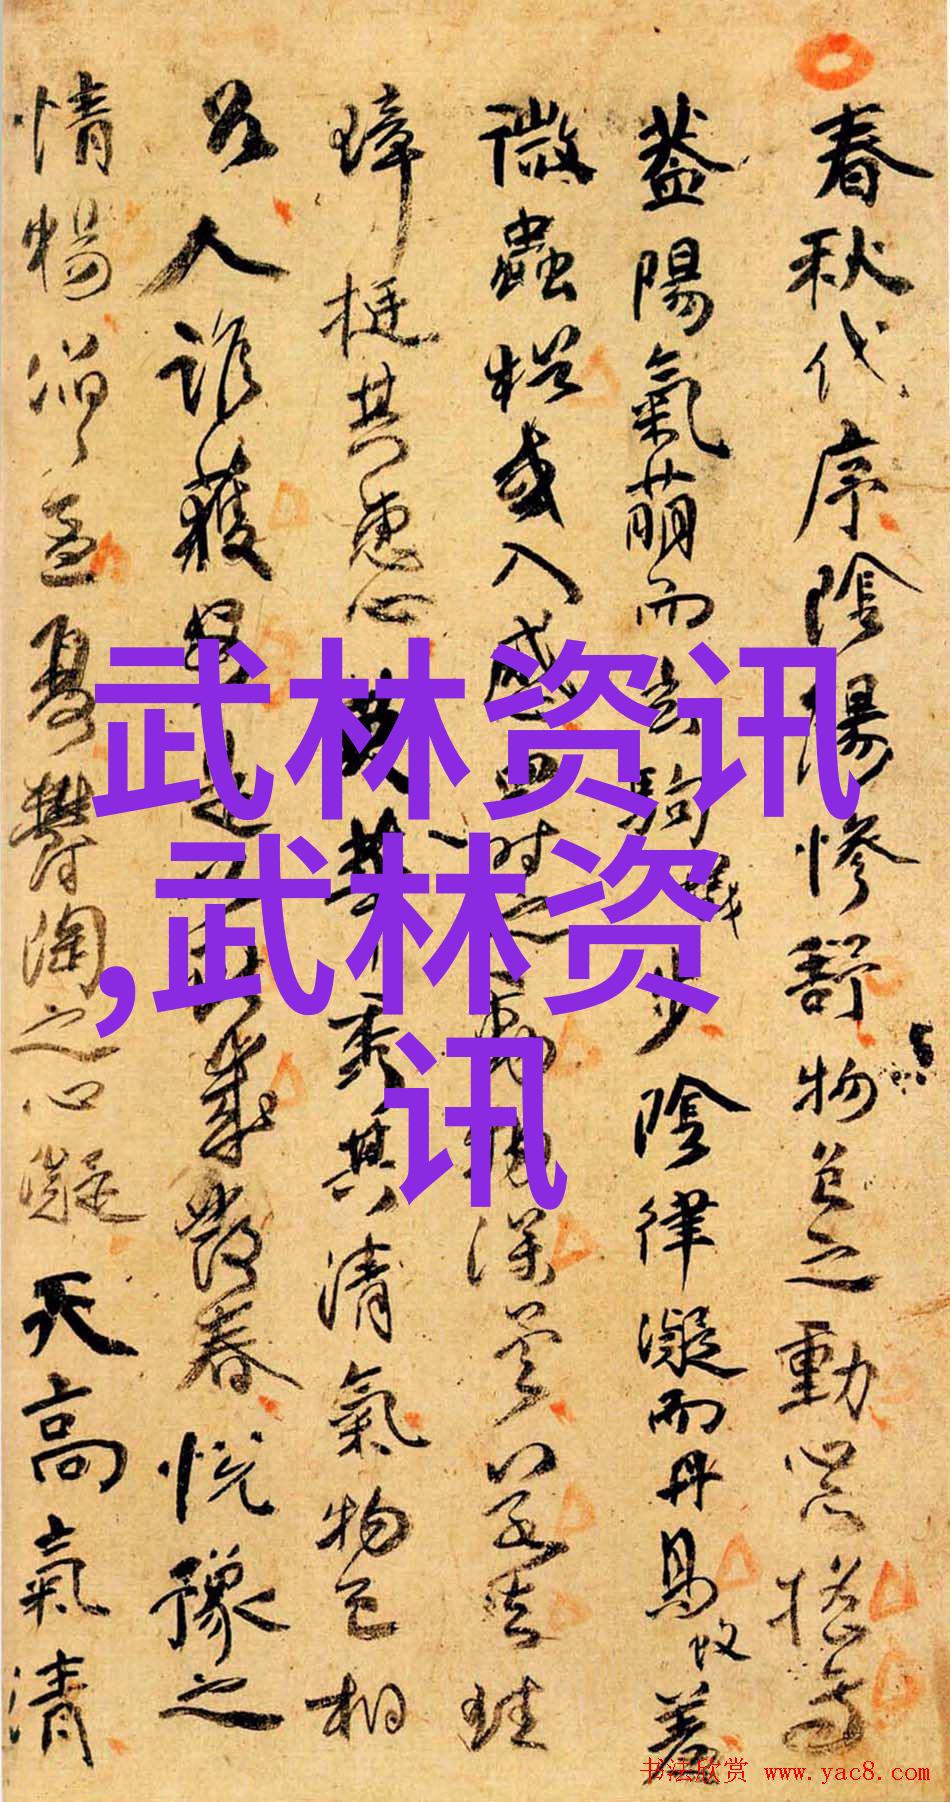 春秋代序陰陽慘舒物色之動心亦搖焉
蓋陽氣萌而玄駒蟻步陰律凝而丹鳥蚊羞
微蟲猶或入感四時之動物深矣若夫珪
璋挺其惠心英華秀其清氣物色相
召人誰獲安是以獻歲發春悅豫之
情暢滔滔孟夏鬱陶之心凝天高氣清
武林资讯
,武林资
讯
书法欣赏 www.yac8.com